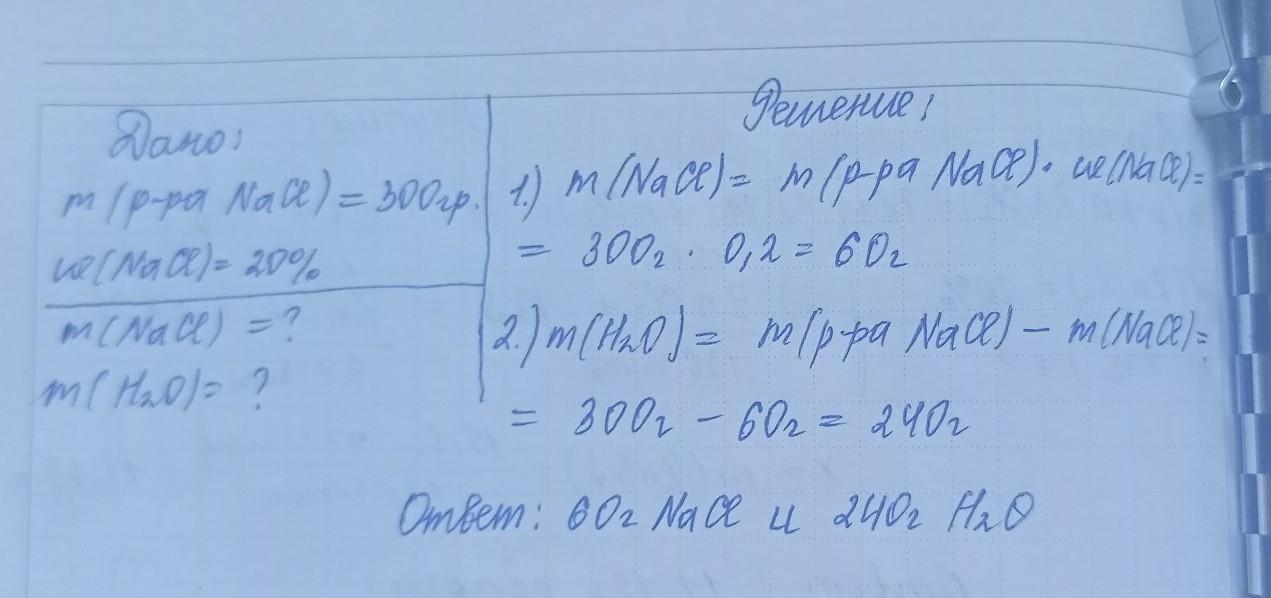 Дано:
m(р-ра NaCl) = 300гр.
ω(NaCl) = 20%
m(NaCl) = ?
m(H₂O) = ?
Решение:
1.) m(NaCl) = m(р-ра NaCl) · ω(NaCl) =
= 300г · 0,2 = 60г
2.) m(H₂O) = m(р-ра NaCl) – m(NaCl) =
= 300г – 60г = 240г
Ответ: 60г NaCl и 240г H₂O